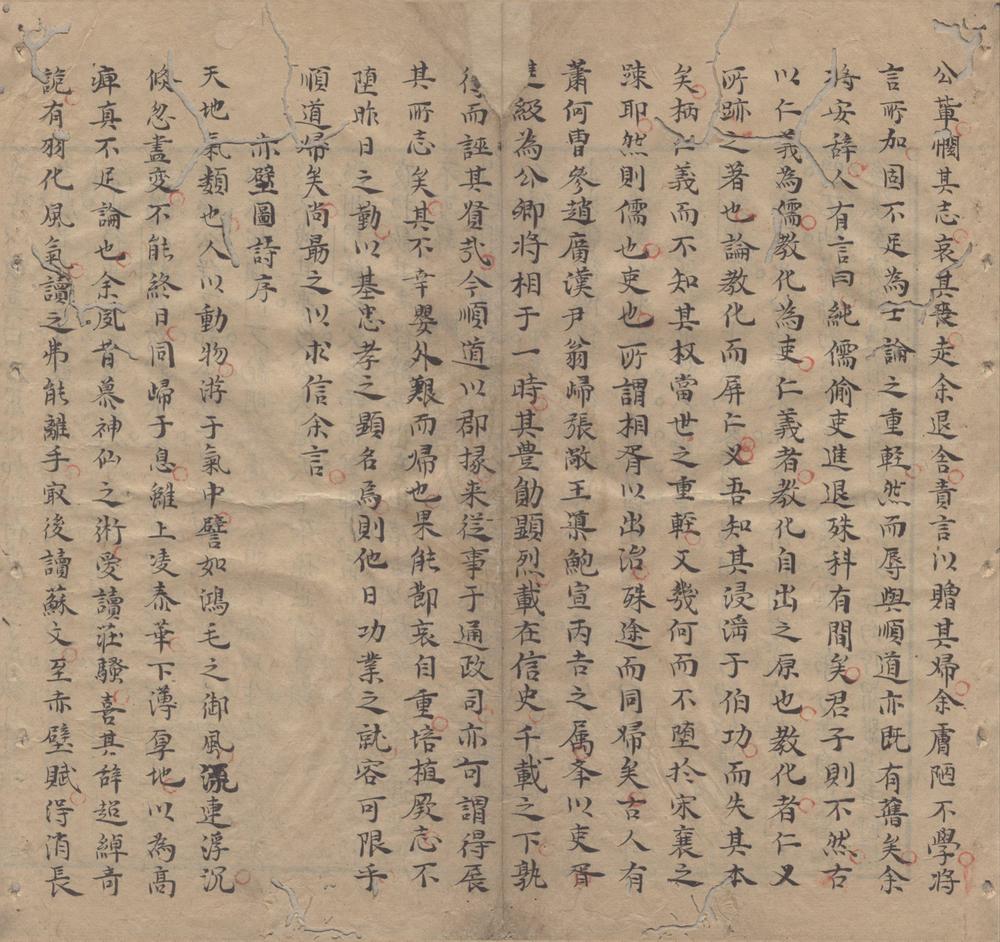 公董憫其志哀其喪走余退舍責言以贈其歸余膚陋不學將
言所加固不足為士論之重輊然而辱與順道亦既有舊矣余
將安辭人有言曰純儒偷吏進退殊科有間矣君子則不然古
以仁義為儒教化為吏仁義者教化自出之原也教化者仁义
所跡之著也論教化而屏仁义吾知其浸淪于伯功而失其本
矣柄仁義而不知其权當世之重輊又幾何而不堕扵宋襄之
踈耶然則儒也吏也所謂相胥以出治殊途而同歸矣古人有
蕭何曹參趙廣漢尹翁歸張敞王尊鮑宣丙吉之属夅以吏胥
進級為公卿将相于一時其豊勛顯烈載在信史千載之下孰
從而誣其贤㢤今順道以郡掾来從事于通政司亦可謂得展
其所志矣其不幸嬰外艱而歸也果能節哀自重培植厥志不
堕昨日之勤以基忠孝之顯名焉則他日功業之就容可限乎
順道歸矣尚朂之以求信余言
赤壁圖詩序
天地氣類也人以動物游于氣中譬如鴻毛之御風流連浮沉
倏忽盡变不能終日同歸于息雖上凌泰華下薄厚地以為高
痺真不足論也余夙昔慕神仙之術愛讀莊騷喜其辞超綽奇
詭有羽化風氣讀之弗能離手㝡後讀蘇文至赤壁賦得消長